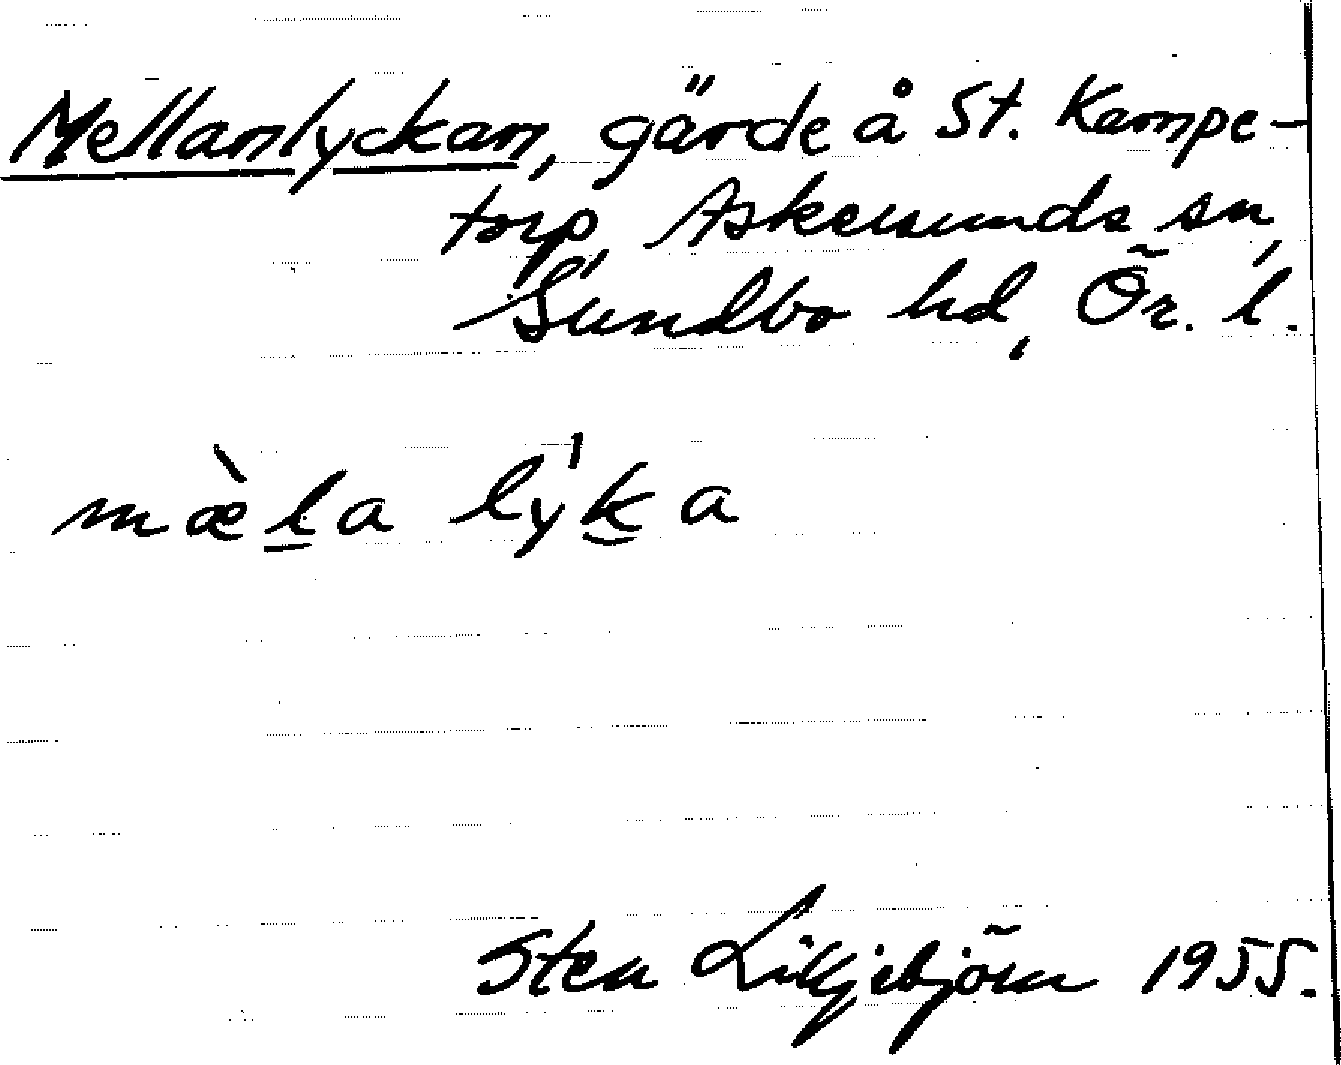 Mellanlyckan, gärde å St. Kampe-
torp, Askersunds sn,
Sundbo hd, Ör. l.
mæ̀l̲a lýk̲a
Sten Liljebjörn 1955.